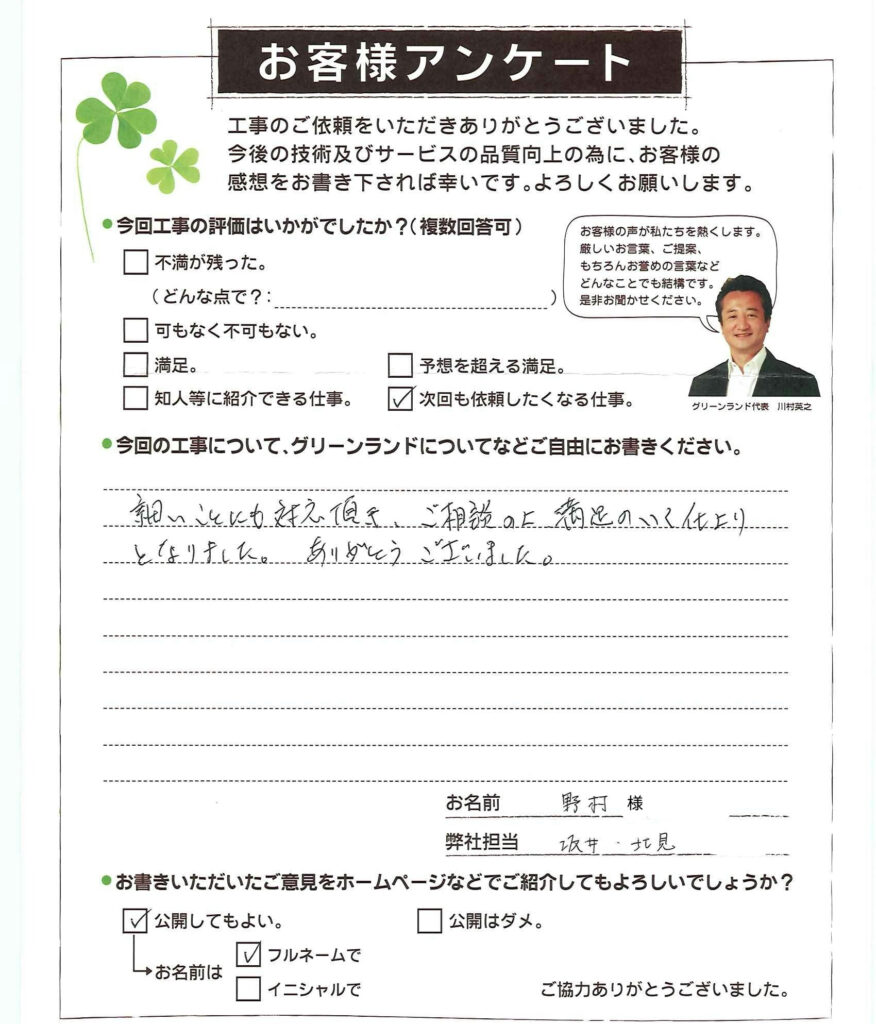 お客様アンケート
工事のご依頼をいただきありがとうございました。
今後の技術及びサービスの品質向上の為に、お客様の
感想をお書き下されば幸いです。よろしくお願いします。
●今回工事の評価はいかがでしたか？（複数回答可）
お客様の声が私たちを熱くします。
厳しいお言葉、ご提案、
もちろんお誉めの言葉など
どんなことでも結構です。
是非お聞かせください。
グリーンランド代表 川村英之
□ 不満が残った。
（どんな点で？： ）
□ 可もなく不可もない。
□ 満足。 □ 予想を超える満足。
□ 知人等に紹介できる仕事。 ☑ 次回も依頼したくなる仕事。
●今回の工事について、グリーンランドについてなどご自由にお書きください。
細いことにも対応頂き、ご相談の上 満足のいく仕上り
となりました。 ありがとうございました。
お名前 野村 様
弊社担当 坂井・北見
●お書きいただいたご意見をホームページなどでご紹介してもよろしいでしょうか？
☑ 公開してもよい。 □ 公開はダメ。
お名前は ☑ フルネームで
□ イニシャルで
ご協力ありがとうございました。